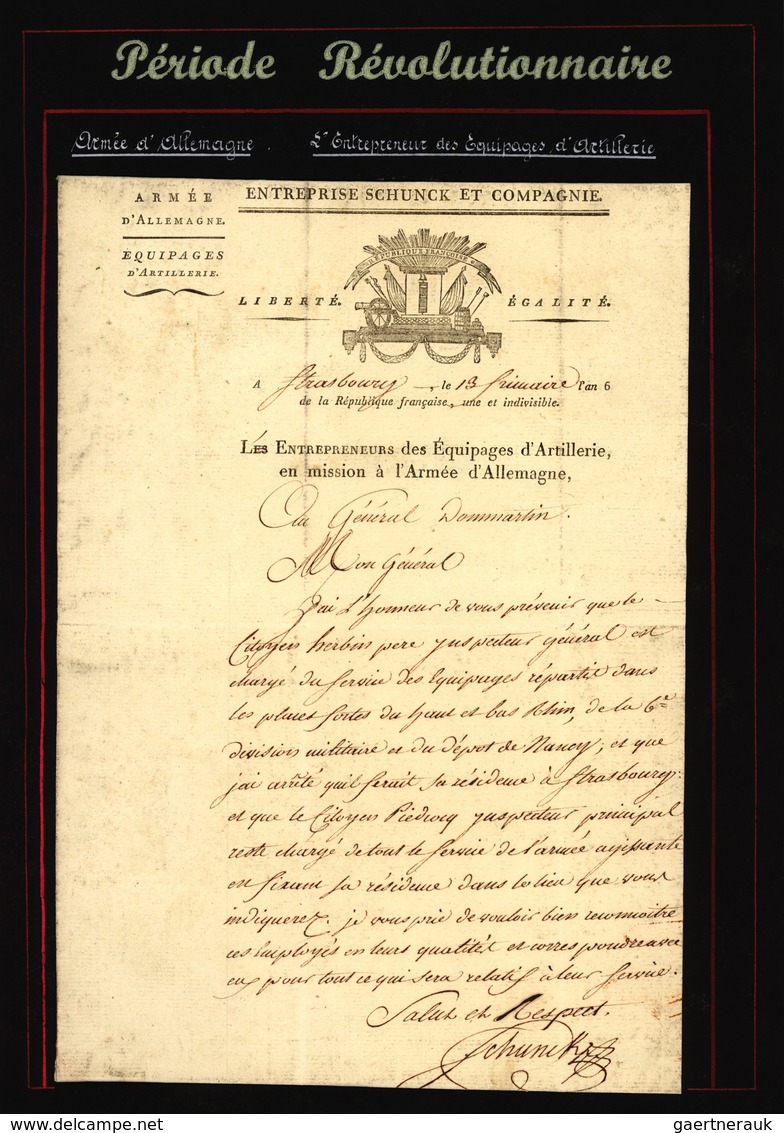 Période Révolutionnaire
Armée d'Allemagne. L'Entrepreneur des Equipages d'Artillerie
ARMÉE
D'ALLEMAGNE.
ÉQUIPAGES
D'ARTILLERIE.
ENTREPRISE SCHUNCK ET COMPAGNIE.
RÉPUBLIQUE FRANÇOISE
LIBERTÉ. ÉGALITÉ.
A Strasbourg, le 13 frimaire l'an 6
de la République française, une et indivisible.
LES ENTREPRENEURS des Équipages d'Artillerie,
en mission à l'Armée d'Allemagne,
Au Général Dommartin.
Mon Général
J'ai l'honneur de vous prévenir que le
Citoyen herbin pere Inspecteur général est
chargé du service des Equipages répartit dans
les places fortes du haut et bas Rhin, de la 6e
division militaire et du dépot de Nancy, et que
j'ai arrêté qu'il ferait sa résidence à Strasbourg:
et que le Citoyen Inspecteur principal
reste chargé de tout le service de l'armée agissante
en fixant sa résidence dans le lieu que vous
indiquerez. je vous prie de vouloir bien reconnoitre
ces Employés en leurs qualités et correspondre avec
eux pour tout ce qui sera relatif à leur service.
Salut et Respect.
Schunck
www.delcampe.net
gaertnerauk